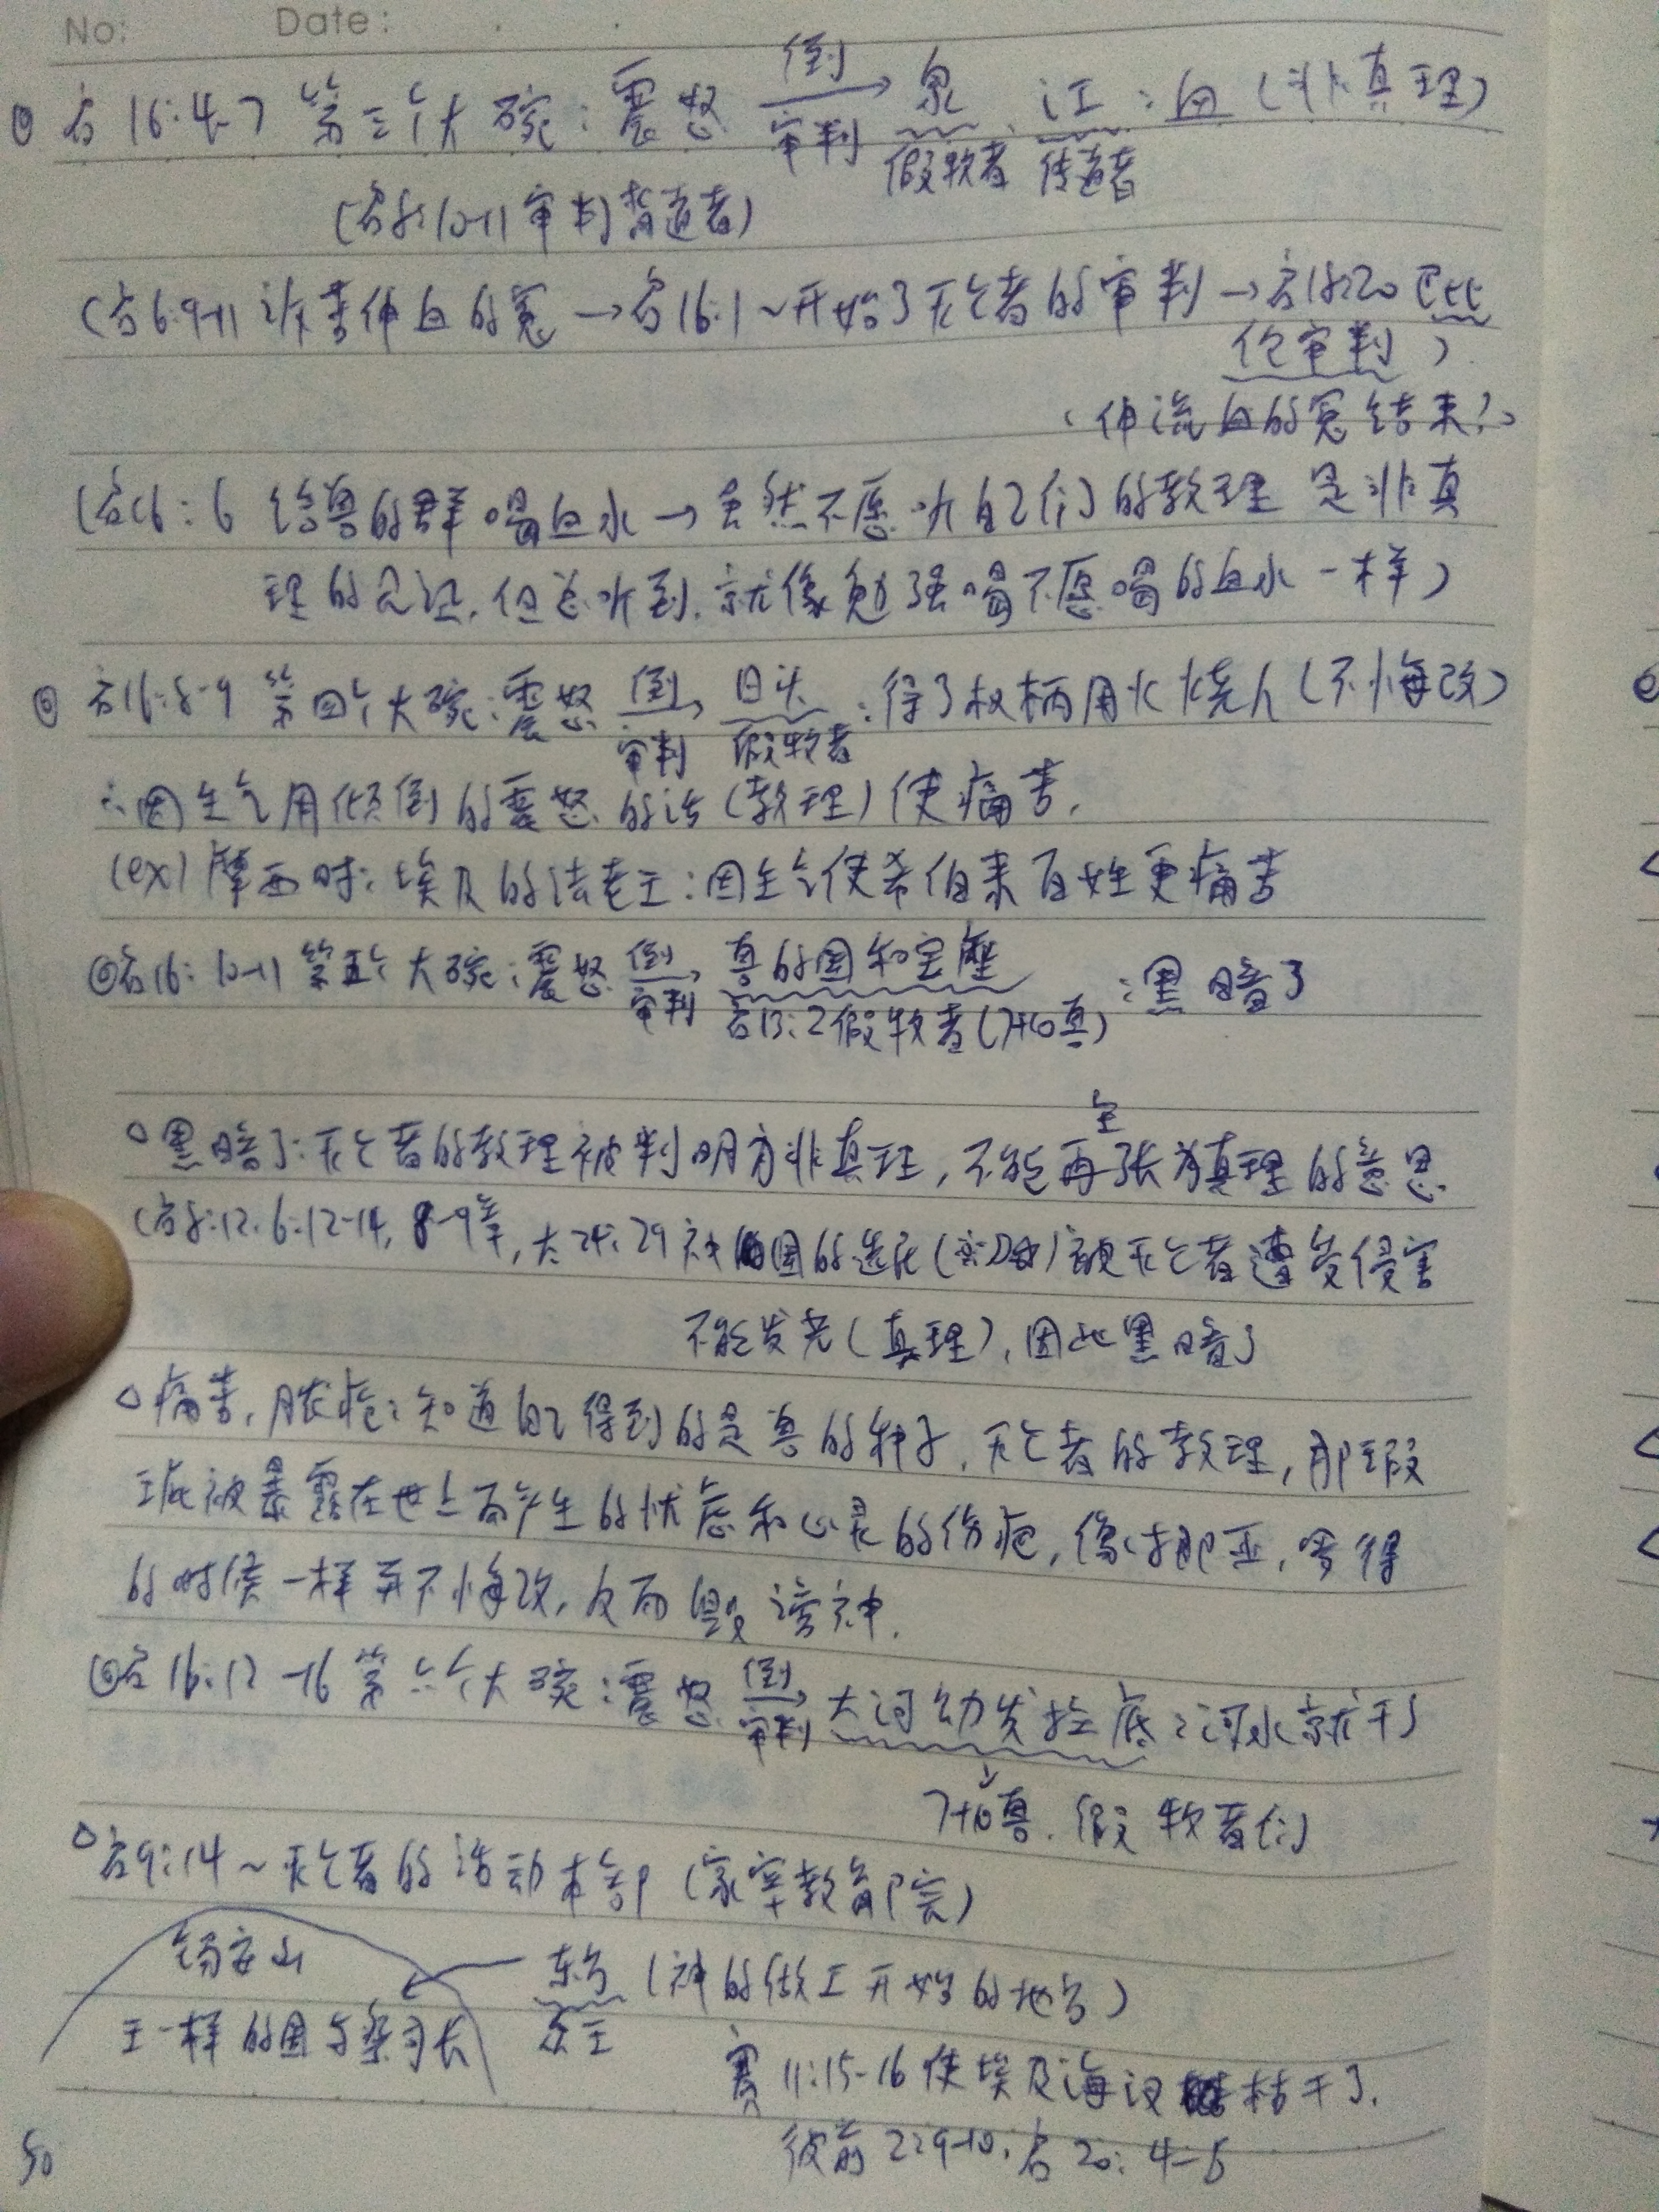 No: Date:
◎ 启16:4-7 第三个大碗:震怒 倒→ 泉、江:血(非真理)
审判 假牧者 传道者
(启8:10-11审判背道者)
(启6:9-11 诉苦伸血的冤→启16:1~开始了灭亡者的审判→启18:20 巴比
伦审判)
(伸流血的冤结束?)
(启16:6 给兽的群喝血水→虽然不愿听自己们的教理是非真
理的见证,但总听到,就像勉强喝不愿喝的血水一样)
◎ 启16:8-9 第四个大碗:震怒 倒→ 日头:得了权柄用火烧人(不悔改)
审判 假牧者
∴因生气用倾倒的震怒的话(教理)使痛苦.
(ex)摩西时:埃及的法老王:因生气使希伯来百姓更痛苦
◎启16:10-11 第五个大碗:震怒 倒→ 兽的国和宝座:黑暗了
审判 启13:2假牧者(7+10兽)
○黑暗了:灭亡者的教理被判明为非真理,不能再主张为真理的意思
(启8:12, 6:12-14, 8-9章,太24:29 被灭亡者遭受侵害
不能发光(真理),因此黑暗了
△痛苦,脓疮:知道自己得到的是兽的种子,灭亡者的教理,那瑕
玼被暴露在世上而产生的忧虑和心灵的伤疤,像挪亚,罗得
的时候一样并不悔改,反而毁谤神.
◎启16:12-16 第六个大碗:震怒 倒→ 大河幼发拉底:河水就干了
审判
↓
7+10兽.假牧者们
△启9:14~灭亡者的活动本部(
锡安山 ← 东方(神的做工开始的地方)
王一样的国与祭司长 众王
赛11:15-16使埃及海汊枯干了.
彼前2:9-10,启20:4-5
50